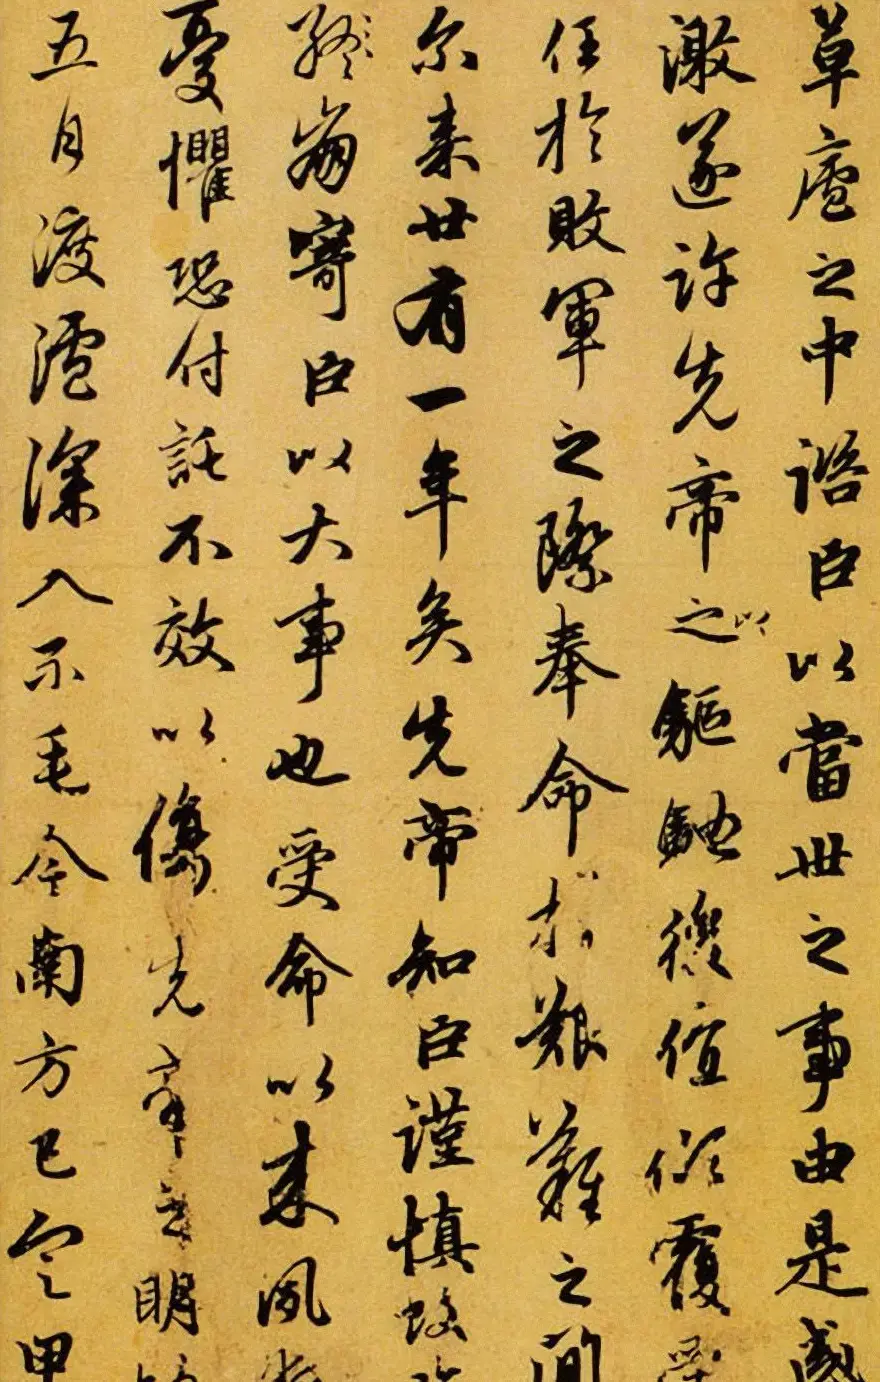 草廬之中諮臣以當世之事由是感
激遂許先帝之以驅馳後值傾覆受
任於敗軍之際奉命於艱難之間
尔来廿有一年矣先帝知臣謹慎故
終崩寄臣以大事也受命以来夙
憂懼恐付託不效以傷先帝之明
五月渡瀘深入不毛今南方已定甲